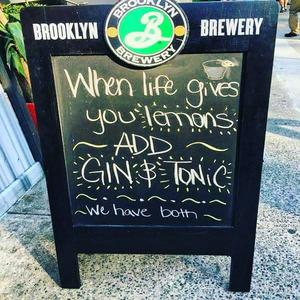 BROOKLYN
BREWERY
BROOKLYN
B
BREWERY
When life gives
you lemons
ADD
GIN & TONIC
We have both